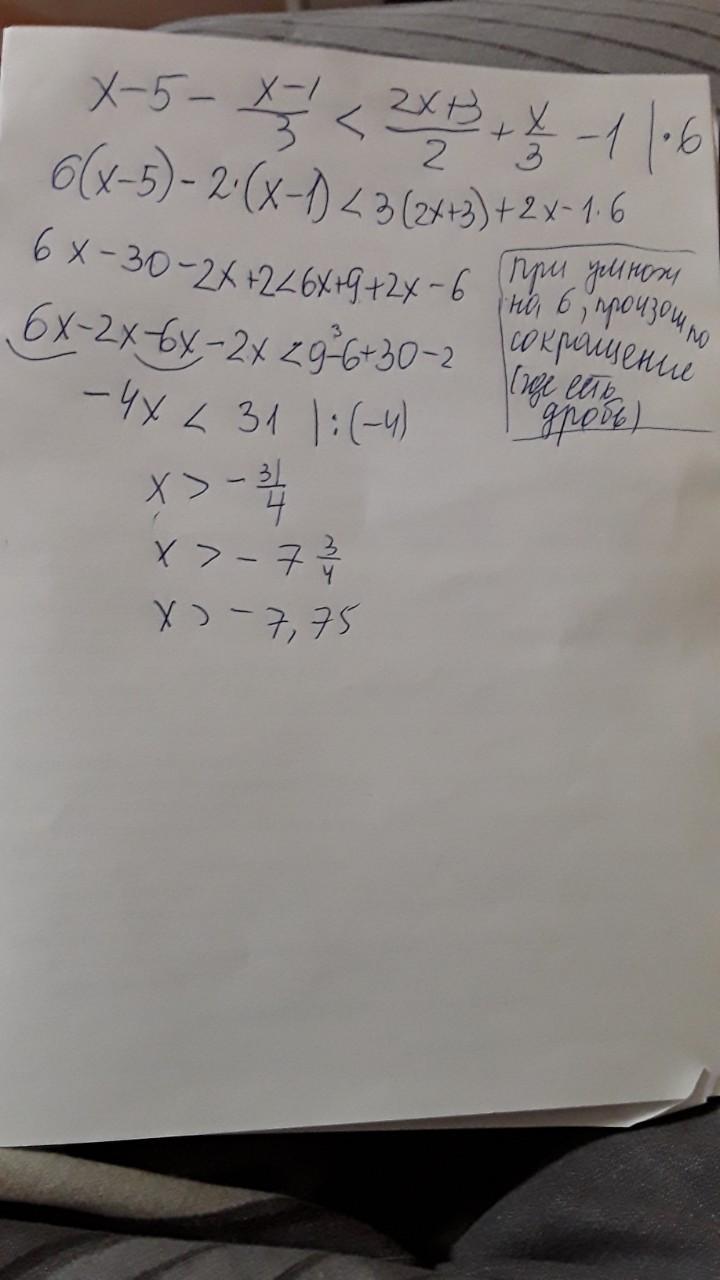 x-5 - (x-1)/3 < (2x+3)/2 + x/3 - 1 | · 6
6(x-5) - 2·(x-1) < 3(2x+3) + 2x - 1·6
6x - 30 - 2x + 2 < 6x + 9 + 2x - 6
6x - 2x - 6x - 2x < 9 - 6 + 30 - 2
3
-4x < 31 | : (-4)
x > - 31/4
x > - 7 3/4
x > - 7,75
При умнож
на 6, произошло
сокращение
(где есть
дробь)